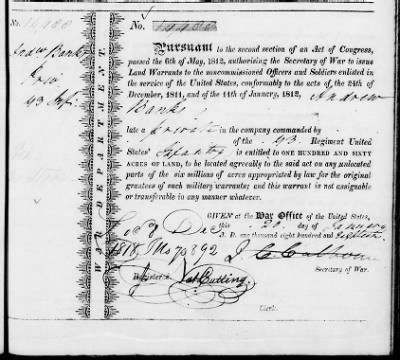 No. 14900
No.
Andw Banks
93 Inf:
WAR DEPARTMENT.
Pursuant to the second section of an Act of Congress,
passed the 6th of May, 1812, authorising the Secretary of War to issue
Land Warrants to the noncommissioned Officers and Soldiers enlisted in
the service of the United States, conformably to the acts, of the 24th of
December, 1811, and of the 11th of January, 1812, Andrew
Banks
late a private in the company commanded by
of the 93 Regiment United
States' Infantry is entitled to ONE HUNDRED AND SIXTY
ACRES OF LAND, to be located agreeably to the said act on any unlocated
parts of the six millions of acres appropriated by law for the original
grantees of such military warrants; and this warrant is not assignable
or transferable in any manner whatever.
GIVEN at the War Office of the United States,
this 28 day of January
A. D. one thousand eight hundred and
Dec
1818 No 70892 J C Calhoun
Secretary of War.
Nat Cutting.
Clerk.